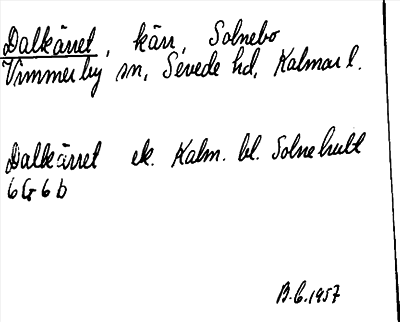 Dalkärret, kärr, Solnebo
Vimmerby sn, Sevede hd, Kalmar l.
Dalkärret ek. Kalm. bl. Solnehult
6G6b
B.G.1957